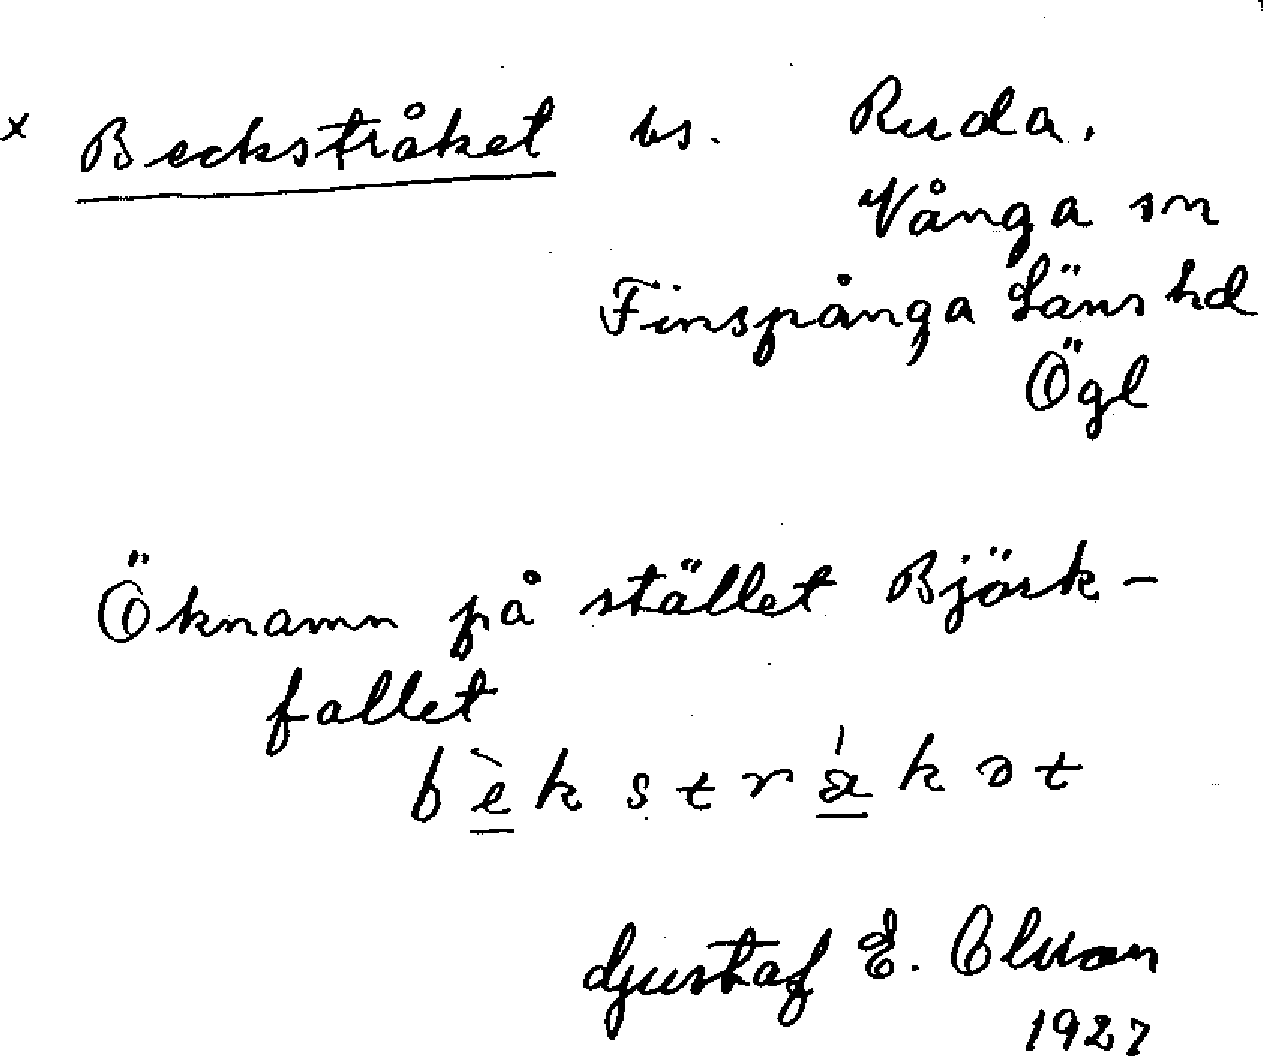 x Beckstråket bs. Ruda.
Vånga sn
Finspånga Läns hd
Ögl
Öknamn på stället Björk-
fallet
bèkstrákət
Gustaf E. Olsson
1927